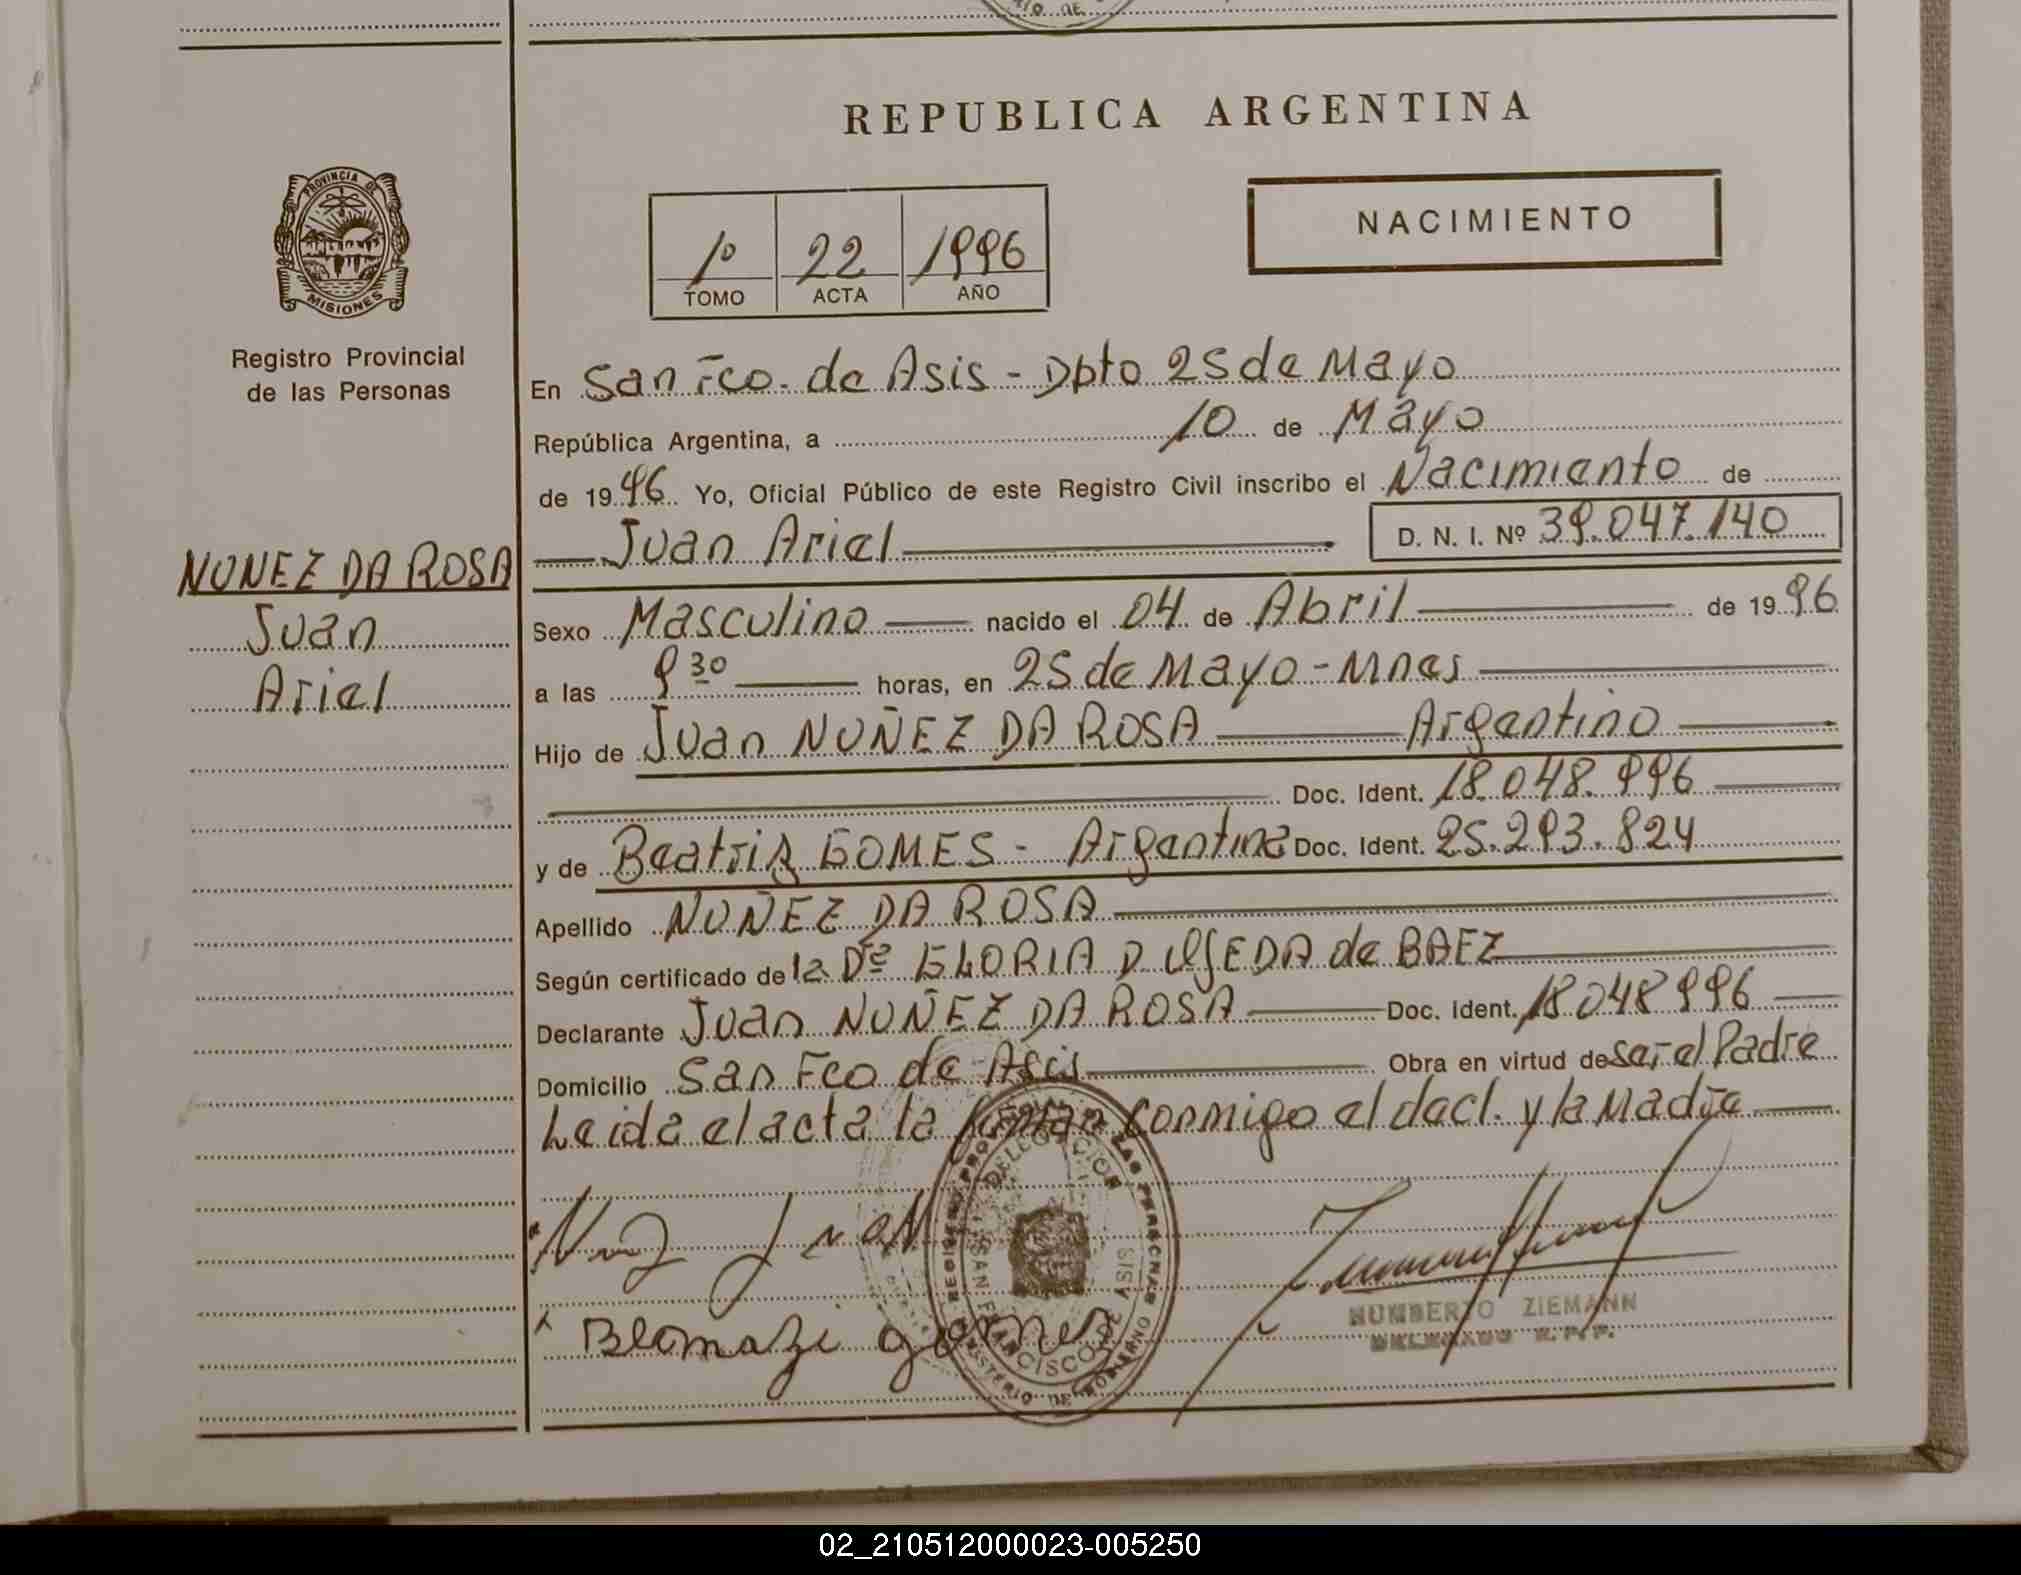 REPUBLICA ARGENTINA
PROVINCIA DE
MISIONES
Registro Provincial
de las Personas
1º 22 1996
TOMO ACTA AÑO
NACIMIENTO
En San Fco. de Asis - Dpto 25 de Mayo
República Argentina, a 10 de Mayo
de 1996 Yo, Oficial Público de este Registro Civil inscribo el Nacimiento de
Juan Ariel D. N. I. Nº 39.047.140
NUNEZ DA ROSA
Juan
Ariel
Sexo Masculino nacido el 04 de Abril de 1996
a las horas, en 25 de Mayo - Mnes
Hijo de Juan NUÑEZ DA ROSA Argentino
Doc. Ident. 18.048.996
y de Beatriz GOMES - Argentina Doc. Ident. 25.293.824
Apellido NUÑEZ DA ROSA
Según certificado de la Dra GLORIA D. de BAEZ
Declarante Juan NUÑEZ DA ROSA Doc. Ident. 18048996
Domicilio San Fco de Asis Obra en virtud de ser el Padre
Leida el acta la firman conmigo el decl. y la Madre
DELEGACION
SAN FRANCISCO DE ASIS
MINISTERIO DE GOBIERNO
HUMBERTO ZIEMANN
DELEGADO R.P.P.
02_210512000023-005250